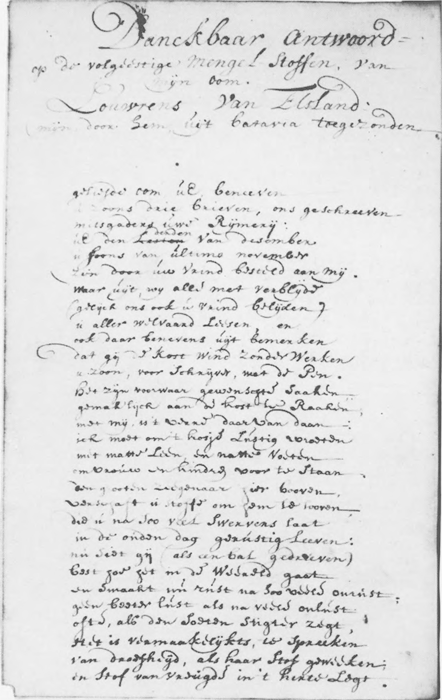 Danckbaar Antwoord=
op de volgeestige Mengel Stoffen, van
mijn oom.
Louwrens Van Elsland:
mijn door hem, uit batavia toegezonden

geliefde oom uE, beneeven
u zoons drie brieven, ons geschreeven
mitsgaders uwe Rijmerij:
uE den derden van desember
u soons van ultimo november
zyn door uw vrind besteld aan mij.
waar uijt wy alle met verblijde
(gelijck ons ook u vrind belijden)
u aller welvaard Leesen, en
ook daar benevens uijt bemerken
dat gij de kost wind zonder werken
u zoon, voor schrijver, met de Pen.
Het zijn voorwaar gewenschte Saaken
gemak'lyck aan de kost te Raaken,
met mij, is't verre daar van daan:
ick moet om't kosje Lustig vroeten
met matte Leen, en natte voeten
om vrouw en kindren voor te Staan.
den grooten zeegenaar hier booven,
verschaft u stoffe om hem te looven
die u na soo veel swervens laat
in de ouden dag gerustig Leeven:
nu siet gij (als een bal gedreeven)
best hoe het in de Weereld gaat
en smaakt nu rust na soo veele onrust:
geen beeter lust als na veele onlust
ofte, als den soeten stigter zegt,
Het is vermaakelijkts, te spreeken
van droefheijd, als haar stof geweeken;
en stof van vreugde in't herte Legt.